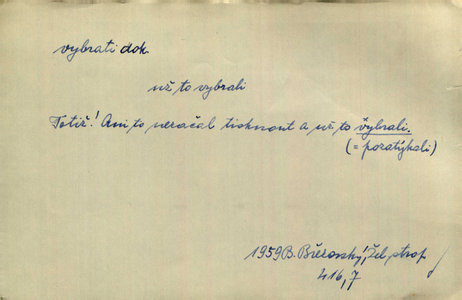 vybrati dok.
už to vybrali
Totiž! Ani to neračal tisknout a už to vybrali.
(= pozatýkali)
1959 B. Březovský, Žel. strop
416,7